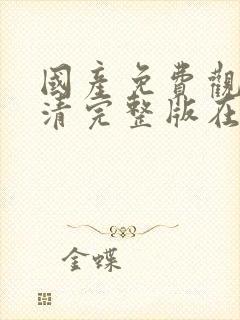 國產免費觀
清完整版在
金蝶